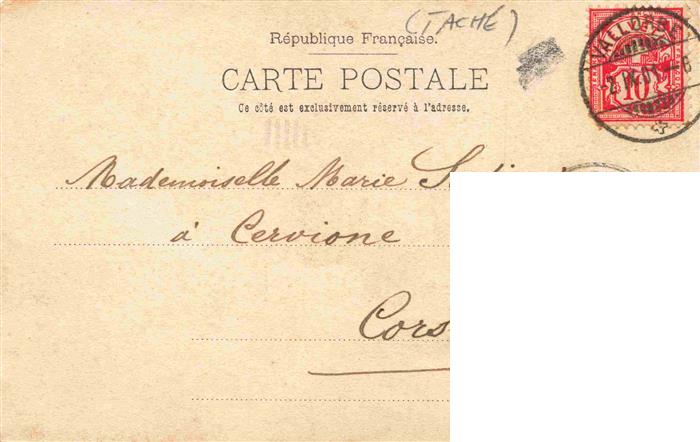 (TACHÉ)
République Française.
CARTE POSTALE
Ce côté est exclusivement réservé à l'adresse.
10
Mademoiselle Marie
à Cervione